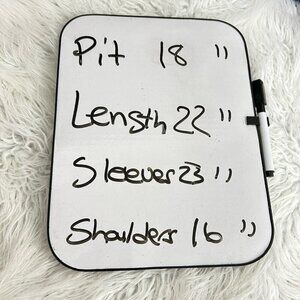 Pit 18 "
Length 22 "
Sleever 23 "
Shoulders 16 "